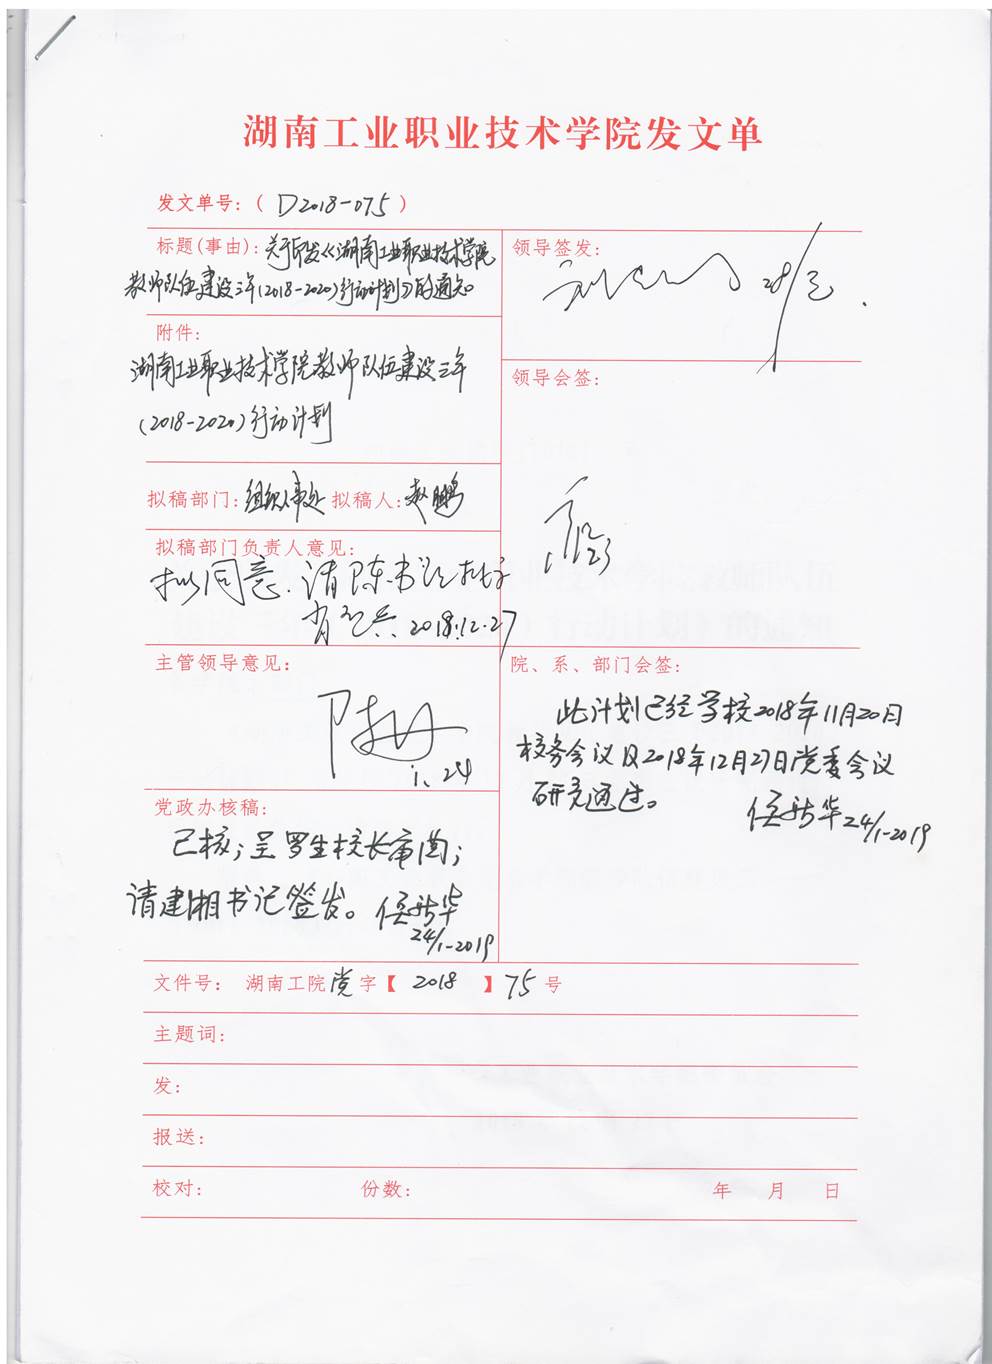 湖南工业职业技术学院发文单
发文单号：（ D2018-075 ）
标题(事由)：关于印发《湖南工业职业技术学院
教师队伍建设三年(2018-2020)行动计划》的通知。
附件：
湖南工业职业技术学院教师队伍建设三年
(2018-2020)行动计划
拟稿部门：组织人事处 拟稿人：赵鹏
拟稿部门负责人意见：
拟同意，请陈书记批示
2018.12.27
主管领导意见：
1.24
党政办核稿：
已核；呈罗生校长审阅；
请建湘书记签发。
24/1-2019
领导签发：
28/
领导会签：
院、系、部门会签：
此计划已经学校2018年11月20日
校务会议及2018年12月27日党委会议
研究通过。
24/1-2019
文件号： 湖南工院党字【 2018 】75号
主题词：
发：
报送：
校对： 份数： 年 月 日